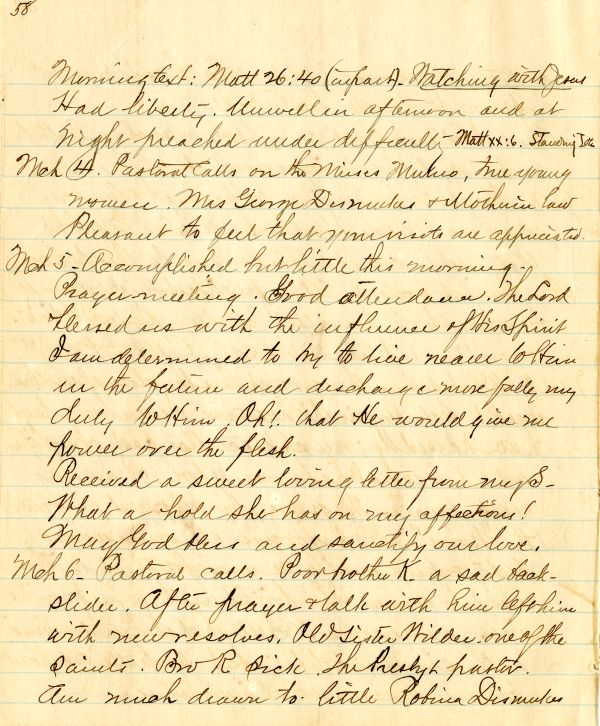 58
Morning text: Matt 26:40 (in part). Watching with Jesus
Had liberty. Unwell in afternoon and at
night preached under difficulty - Matt xx:6. Standing Idle
Mch 4. Pastoral Calls on the Misses Munro, true young
women. Mrs George Dismukes & Mother in law
Pleasant to feel that your visits are appreciated.
Mch 5 - Accomplished but little this morning -
Prayer-meeting. Good attendance. The Lord
blessed us with the influence of His Spirit
I am determined to try to live nearer to Him
in the future and discharge more fully my
duty to Him. Oh! that He would give me
power over the flesh.
Received a sweet loving letter from my S-
What a hold she has on my affections!
May God bless and sanctify our love.
Mch 6 - Pastoral calls. Poor brother K. a sad back-
slider. After prayer & talk with him left him
with new resolves. Old Sister Wilder. one of the
saints. Bro R sick. The Presby. pastor.
Am much drawn to little Robina Dismukes